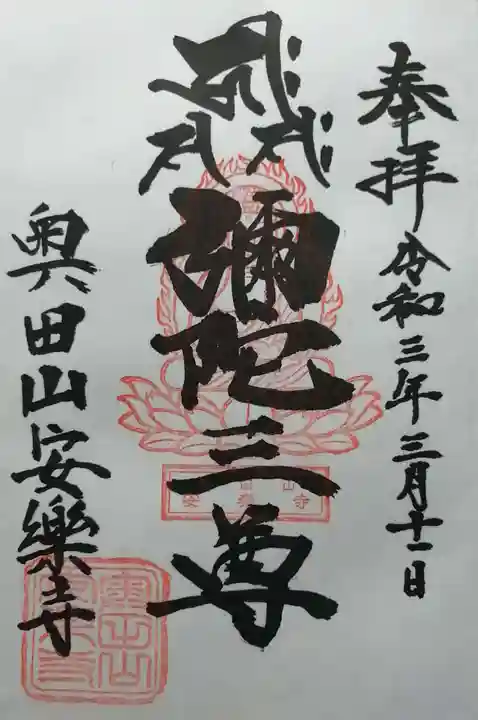 奉拝 令和三年三月十一日
彌陀三尊
奥田山安樂寺